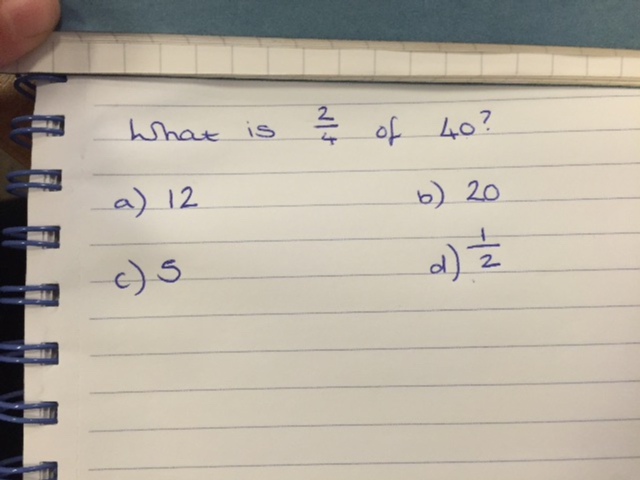 What is 2/4 of 40?
a) 12 b) 20
c) 5 d) 1/2